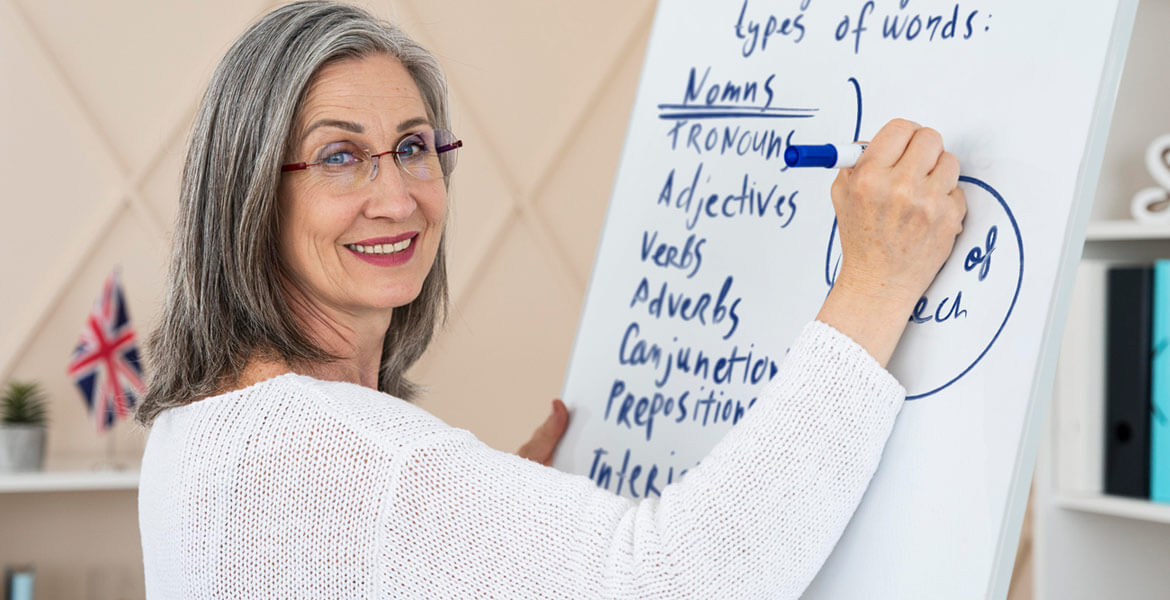 types of words:
Nomns
PRONOUNs
Adjectives
Verbs
Adverbs
Conjunction
Preposition
Interj
of
ech